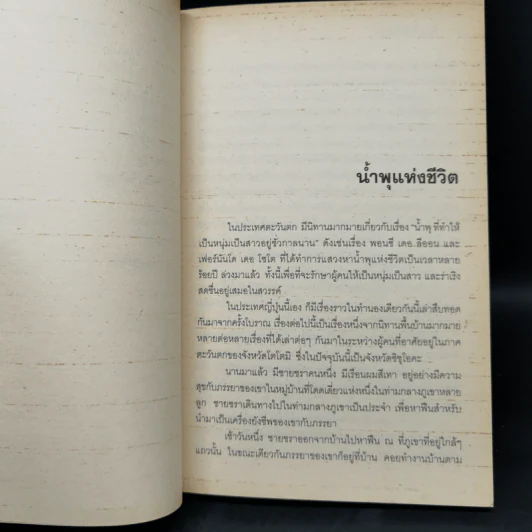 น้ำพุแห่งชีวิต
ในประเทศตะวันตก มีนิทานมากมายเกี่ยวกับเรื่อง "น้ำพุ ที่ทำให้
เป็นหนุ่มเป็นสาวอยู่ชั่วกาลนาน" ดังเช่นเรื่อง พอนซี เดอ ลีออน และ
เฟอร์นันโด เดอ โซโต ที่ได้ทำการแสวงหาน้ำพุแห่งชีวิตเป็นเวลาหลาย
ร้อยปี ล่วงมาแล้ว ทั้งนี้เพื่อที่จะรักษาผู้คนให้เป็นหนุ่มเป็นสาว และร่าเริง
สดชื่นอยู่เสมอในสวรรค์
ในประเทศญี่ปุ่นนี้เอง ก็มีเรื่องราวในทำนองเดียวกันนี้เล่าสืบทอด
กันมาจากครั้งโบราณ เรื่องต่อไปนี้เป็นเรื่องหนึ่งจากนิทานพื้นบ้านมากมาย
หลายต่อหลายเรื่องที่ได้เล่าต่อๆ กันมาในระหว่างผู้คนที่อาศัยอยู่ในภาค
ตะวันตกของจังหวัดโตโตมิ ซึ่งในปัจจุบันนี้เป็นจังหวัดชิซุโอคะ
นานมาแล้ว มีชายชราคนหนึ่ง มีเรือนผมสีเทา อยู่อย่างมีความ
สุขกับภรรยาของเขาในหมู่บ้านที่โดดเดี่ยวแห่งหนึ่งในท่ามกลางภูเขาหลาย
ลูก ชายชราเดินทางไปในท่ามกลางภูเขาเป็นประจำ เพื่อหาฟืนสำหรับ
นำมาเป็นเครื่องยังชีพของเขากับภรรยา
เช้าวันหนึ่ง ชายชราออกจากบ้านไปหาฟืน ณ ที่ภูเขาที่อยู่ใกล้ๆ
แถวนั้น ในขณะเดียวกันภรรยาของเขาก็อยู่ที่บ้าน คอยทำงานบ้านตาม